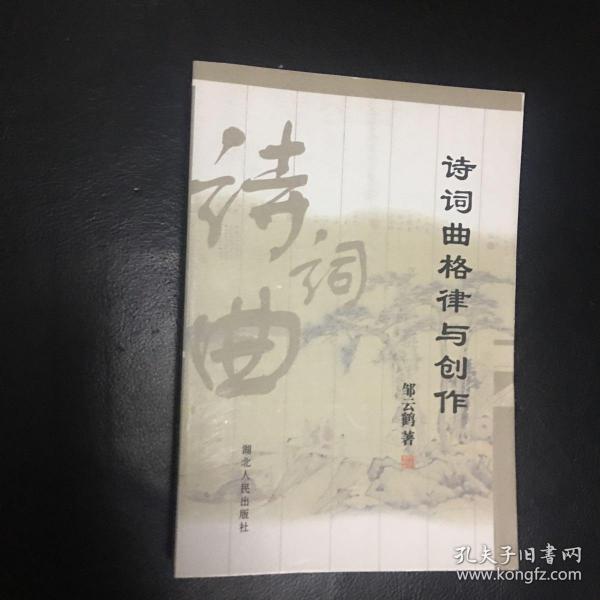 诗词曲格律与创作
邹云鹤 著
诗
词
曲
湖北人民出版社
孔夫子旧書网
www.kongfz.com